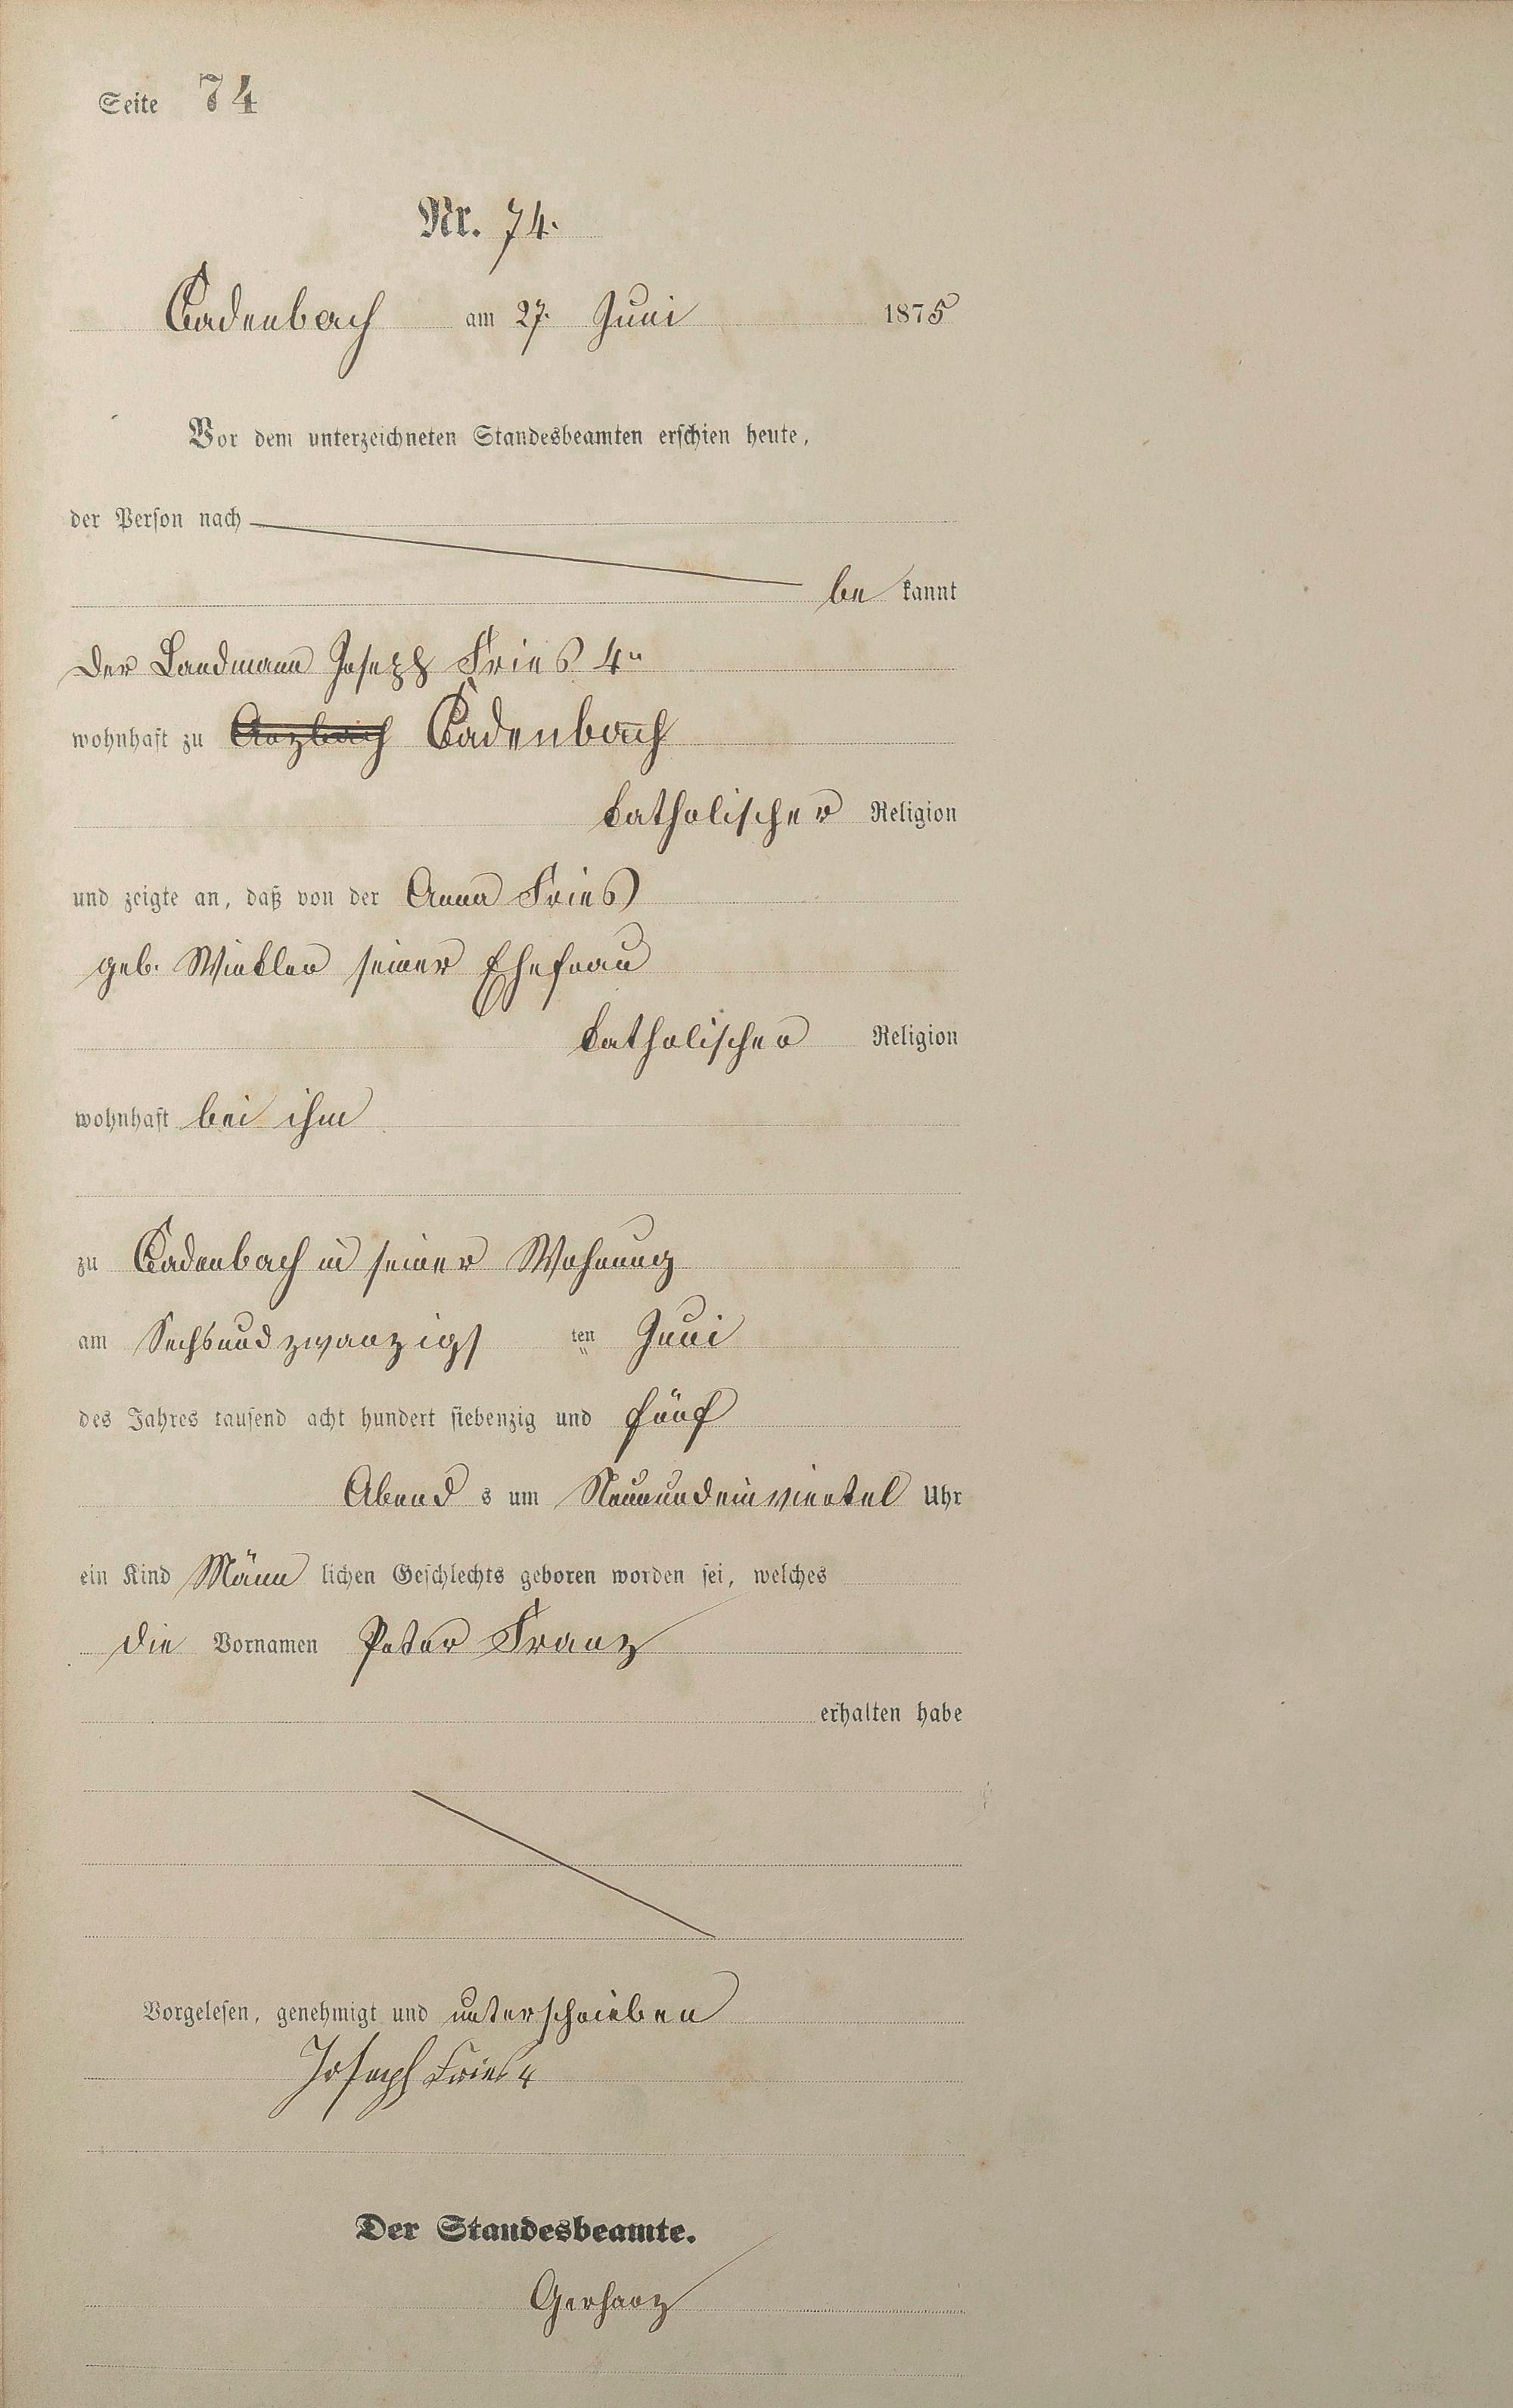 Seite 74
Nr. 74.
Cadenbach am 27. Juni 1875
Vor dem unterzeichneten Standesbeamten erschien heute,
der Person nach
be kannt
der Landmann Joseph Fries 4r
wohnhaft zu Arzbach Cadenbach
katholischer Religion
und zeigte an, daß von der Anna Fries
geb. Winkler seiner Ehefrau
katholischer Religion
wohnhaft bei ihm
zu Cadenbach in seiner Wohnung
am Sechsundzwanzigs ten Juni
des Jahres tausend acht hundert siebenzig und fünf
Abend s um Neunundeinviertel Uhr
ein Kind Männ lichen Geschlechts geboren worden sei, welches
die Vornamen Peter Franz
erhalten habe
Vorgelesen, genehmigt und unterschrieben
Joseph Fries 4
Der Standesbeamte.
Gerharz